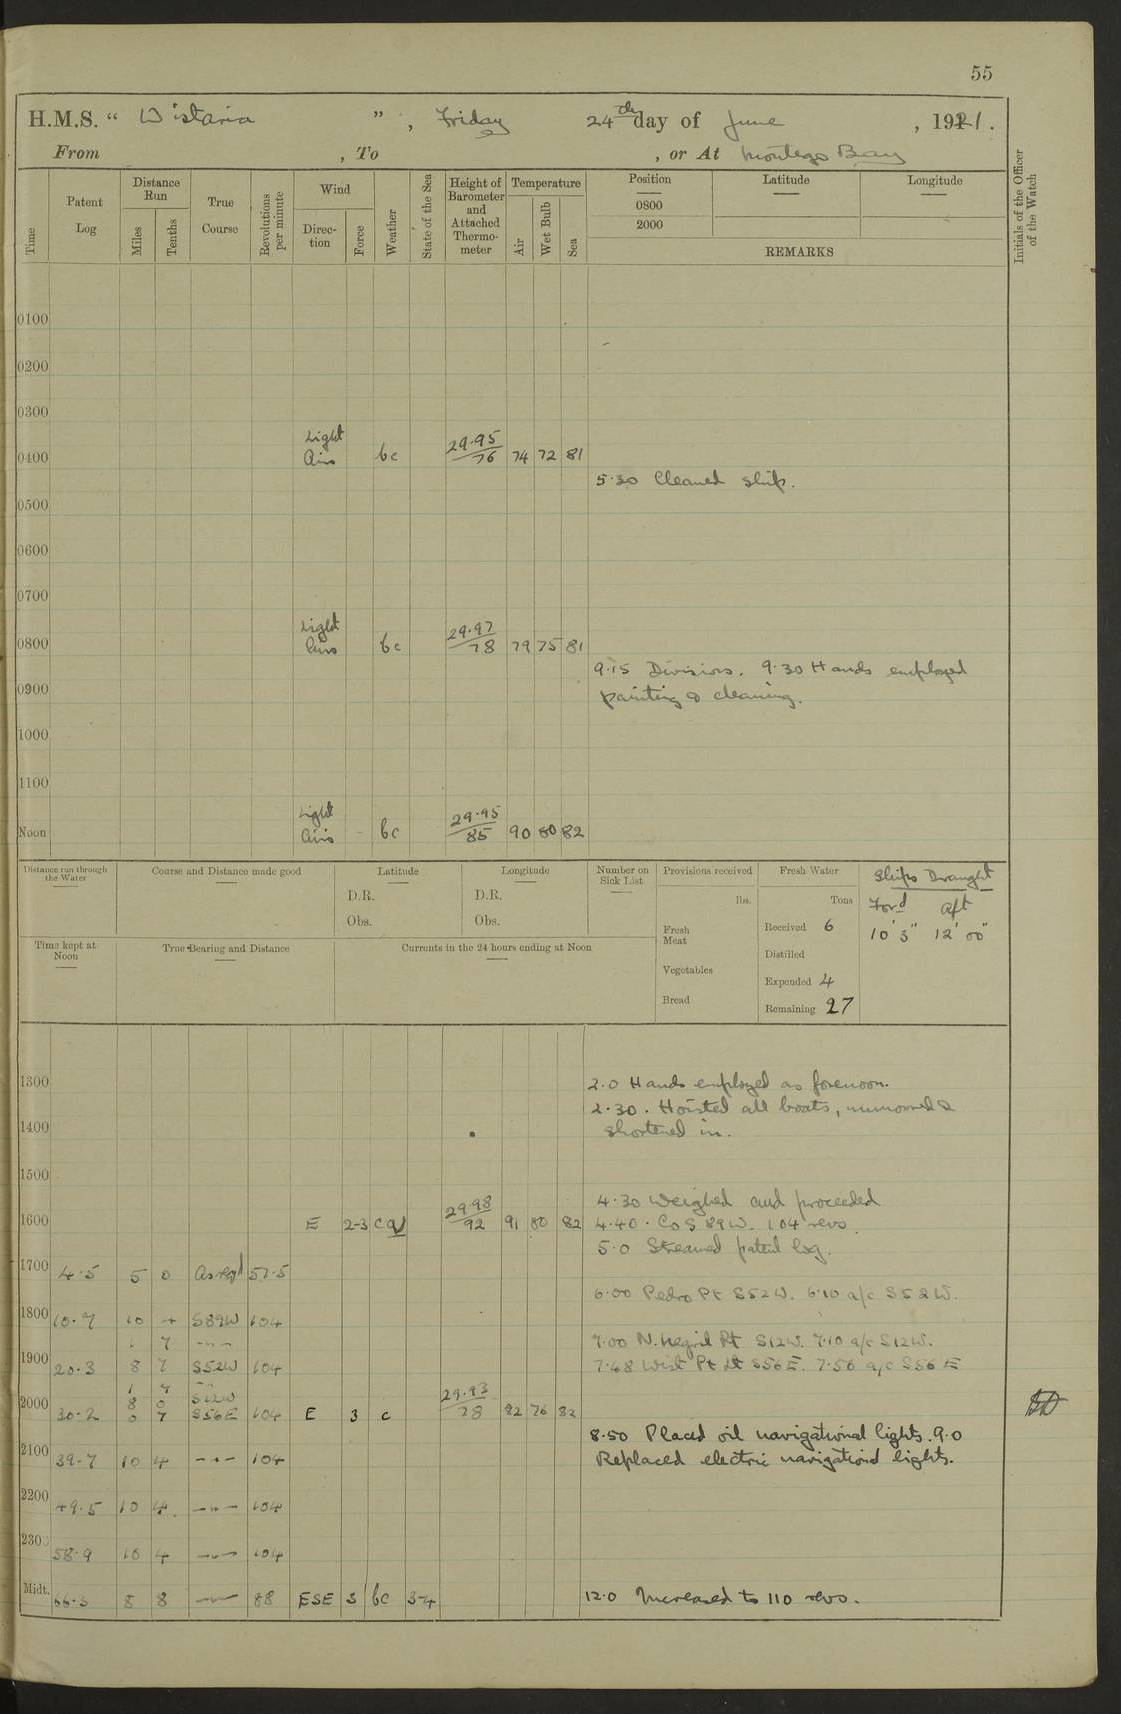 55
H.M.S. “ Wistaria ” , Friday 24th day of June , 1921.
From , To , or At Montego Bay
Time
Patent Log
Distance Run
Miles
Tenths
True Course
Revolutions per minute
Wind
Direction
Force
Weather
State of the Sea
Height of Barometer and Attached Thermometer
Temperature
Air
Wet Bulb
Sea
Position Latitude Longitude
0800
2000
REMARKS
Initials of the Officer of the Watch
0100
0200
0300
Light
0400 Airs bc 29.95/76 74 72 81
5.30 Cleaned ship.
0500
0600
0700
Light
0800 Airs bc 29.97/78 79 75 81
9.15 Divisions. 9.30 Hands employed
0900
painting & cleaning.
1000
1100
Light
Noon Airs bc 29.95/85 90 80 82
Distance run through the Water
Course and Distance made good
Latitude
D.R.
Obs.
Longitude
D.R.
Obs.
Number on Sick List
Provisions received
lbs.
Fresh Meat
Vegetables
Bread
Fresh Water
Tons
Received 6
Distilled
Expended 4
Remaining 27
Ships Draught
Ford Aft
10' 3" 12' 00"
Time kept at Noon
True Bearing and Distance
Currents in the 24 hours ending at Noon
1300 2.0 Hands employed as forenoon.
2.30. Hoisted all boats, unmoored &
1400 shortened in.
1500
4.30 Weighed and proceeded
1600 E 2-3 cq 29.98/92 91 80 82 4.40. Co S 89W. 104 revs.
5.0 Streamed patent log.
1700 4.5 5 0 As reqd 57.5
6.00 Pedro Pt S52W. 6.10 a/c S52W.
1800 10.7 10 4 S89W 104
1 7 -"- 7.00 N. Negril Pt S12W. 7.10 a/c S12W.
1900 20.3 8 7 S52W 104 7.48 West Pt Lt S56E. 7.56 a/c S56E
1 7 -"-
8 0 S12W
2000 30.2 0 7 S56E 104 E 3 c 29.93/78 82 76 82
8.50 Placed oil navigational lights. 9.0
2100 39.7 10 4 -"- 104 Replaced electric navigational lights.
2200 49.5 10 4. -"- 104
2300 58.9 10 4 -"- 104
Midt. 66.3 8 8 -"- 88 ESE 3 bc 3-4 12.0 Increased to 110 revs.